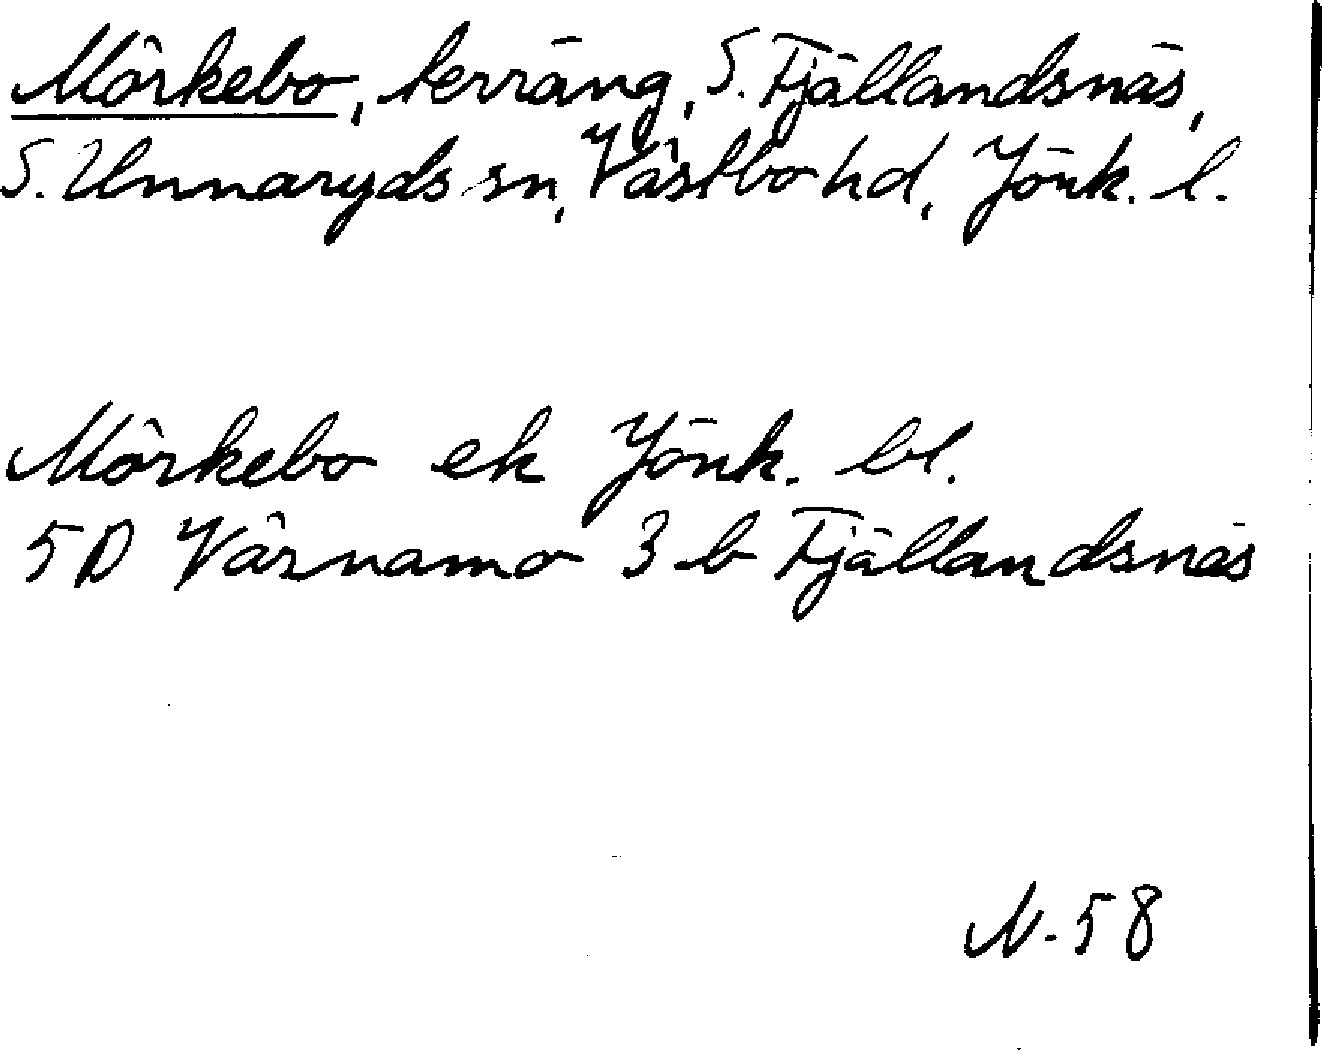 Mörkebo, terräng, S. Fjällandsnäs,
S. Unnaryds sn, Västbo hd, Jönk. l.
Mörkebo ek Jönk. bl.
5D Värnamo 3 b Fjällandsnäs
N. 58